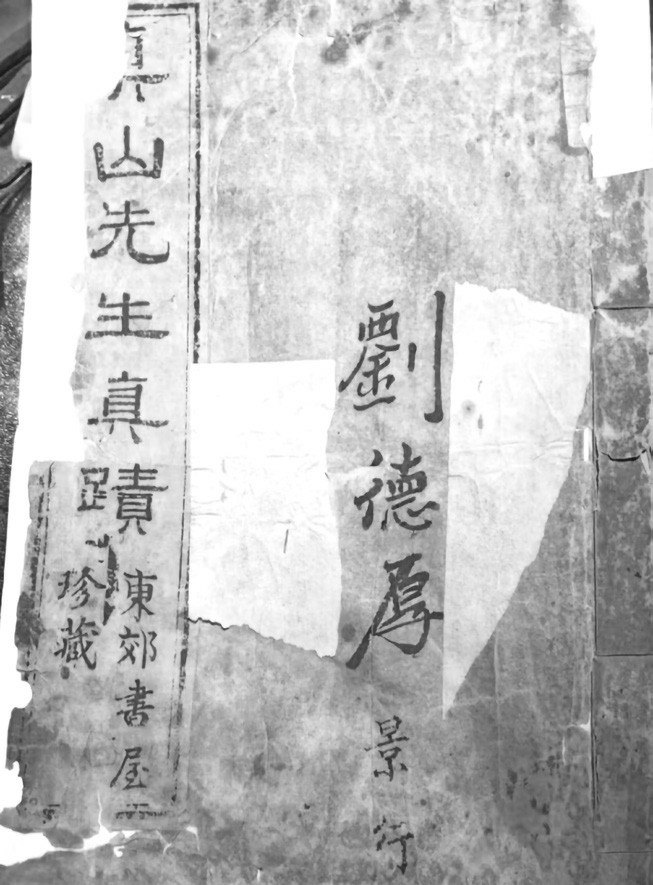 劉德厚
景行
山先生真蹟
東郊書屋
珍藏